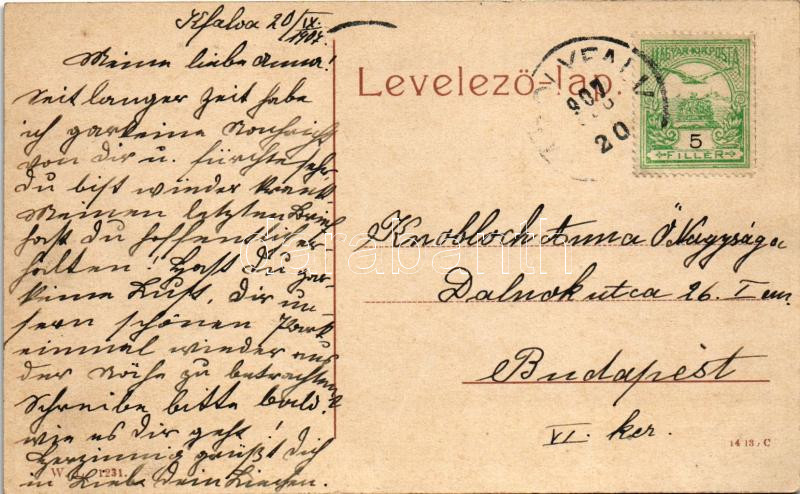 Kfalva 20/IX. 1907.
Meine liebe Anna!
Seit langer Zeit habe
ich gar keine Nachricht
von Dir u. fürchte sehr
Du bist wieder krank.
Meinen letzten Brief
hast Du hoffentlich er-
halten! Hast Du gar
keine Lust, Dir un-
sern schönen Park
einmal wieder aus
der Nähe zu betrachten?
Schreibe bitte bald,
wie es Dir geht!
Herzinnig grüßt Dich
in Liebe Dein Lieschen.
W. 1231.
Levelező-lap.
MAGYAR KIR. POSTA
5
FILLER
907
20
Knobloch Anna Ő Nagysága
Dalnok utca 26. I em.
Budapest
VI. ker.
14 13, C
darabanth